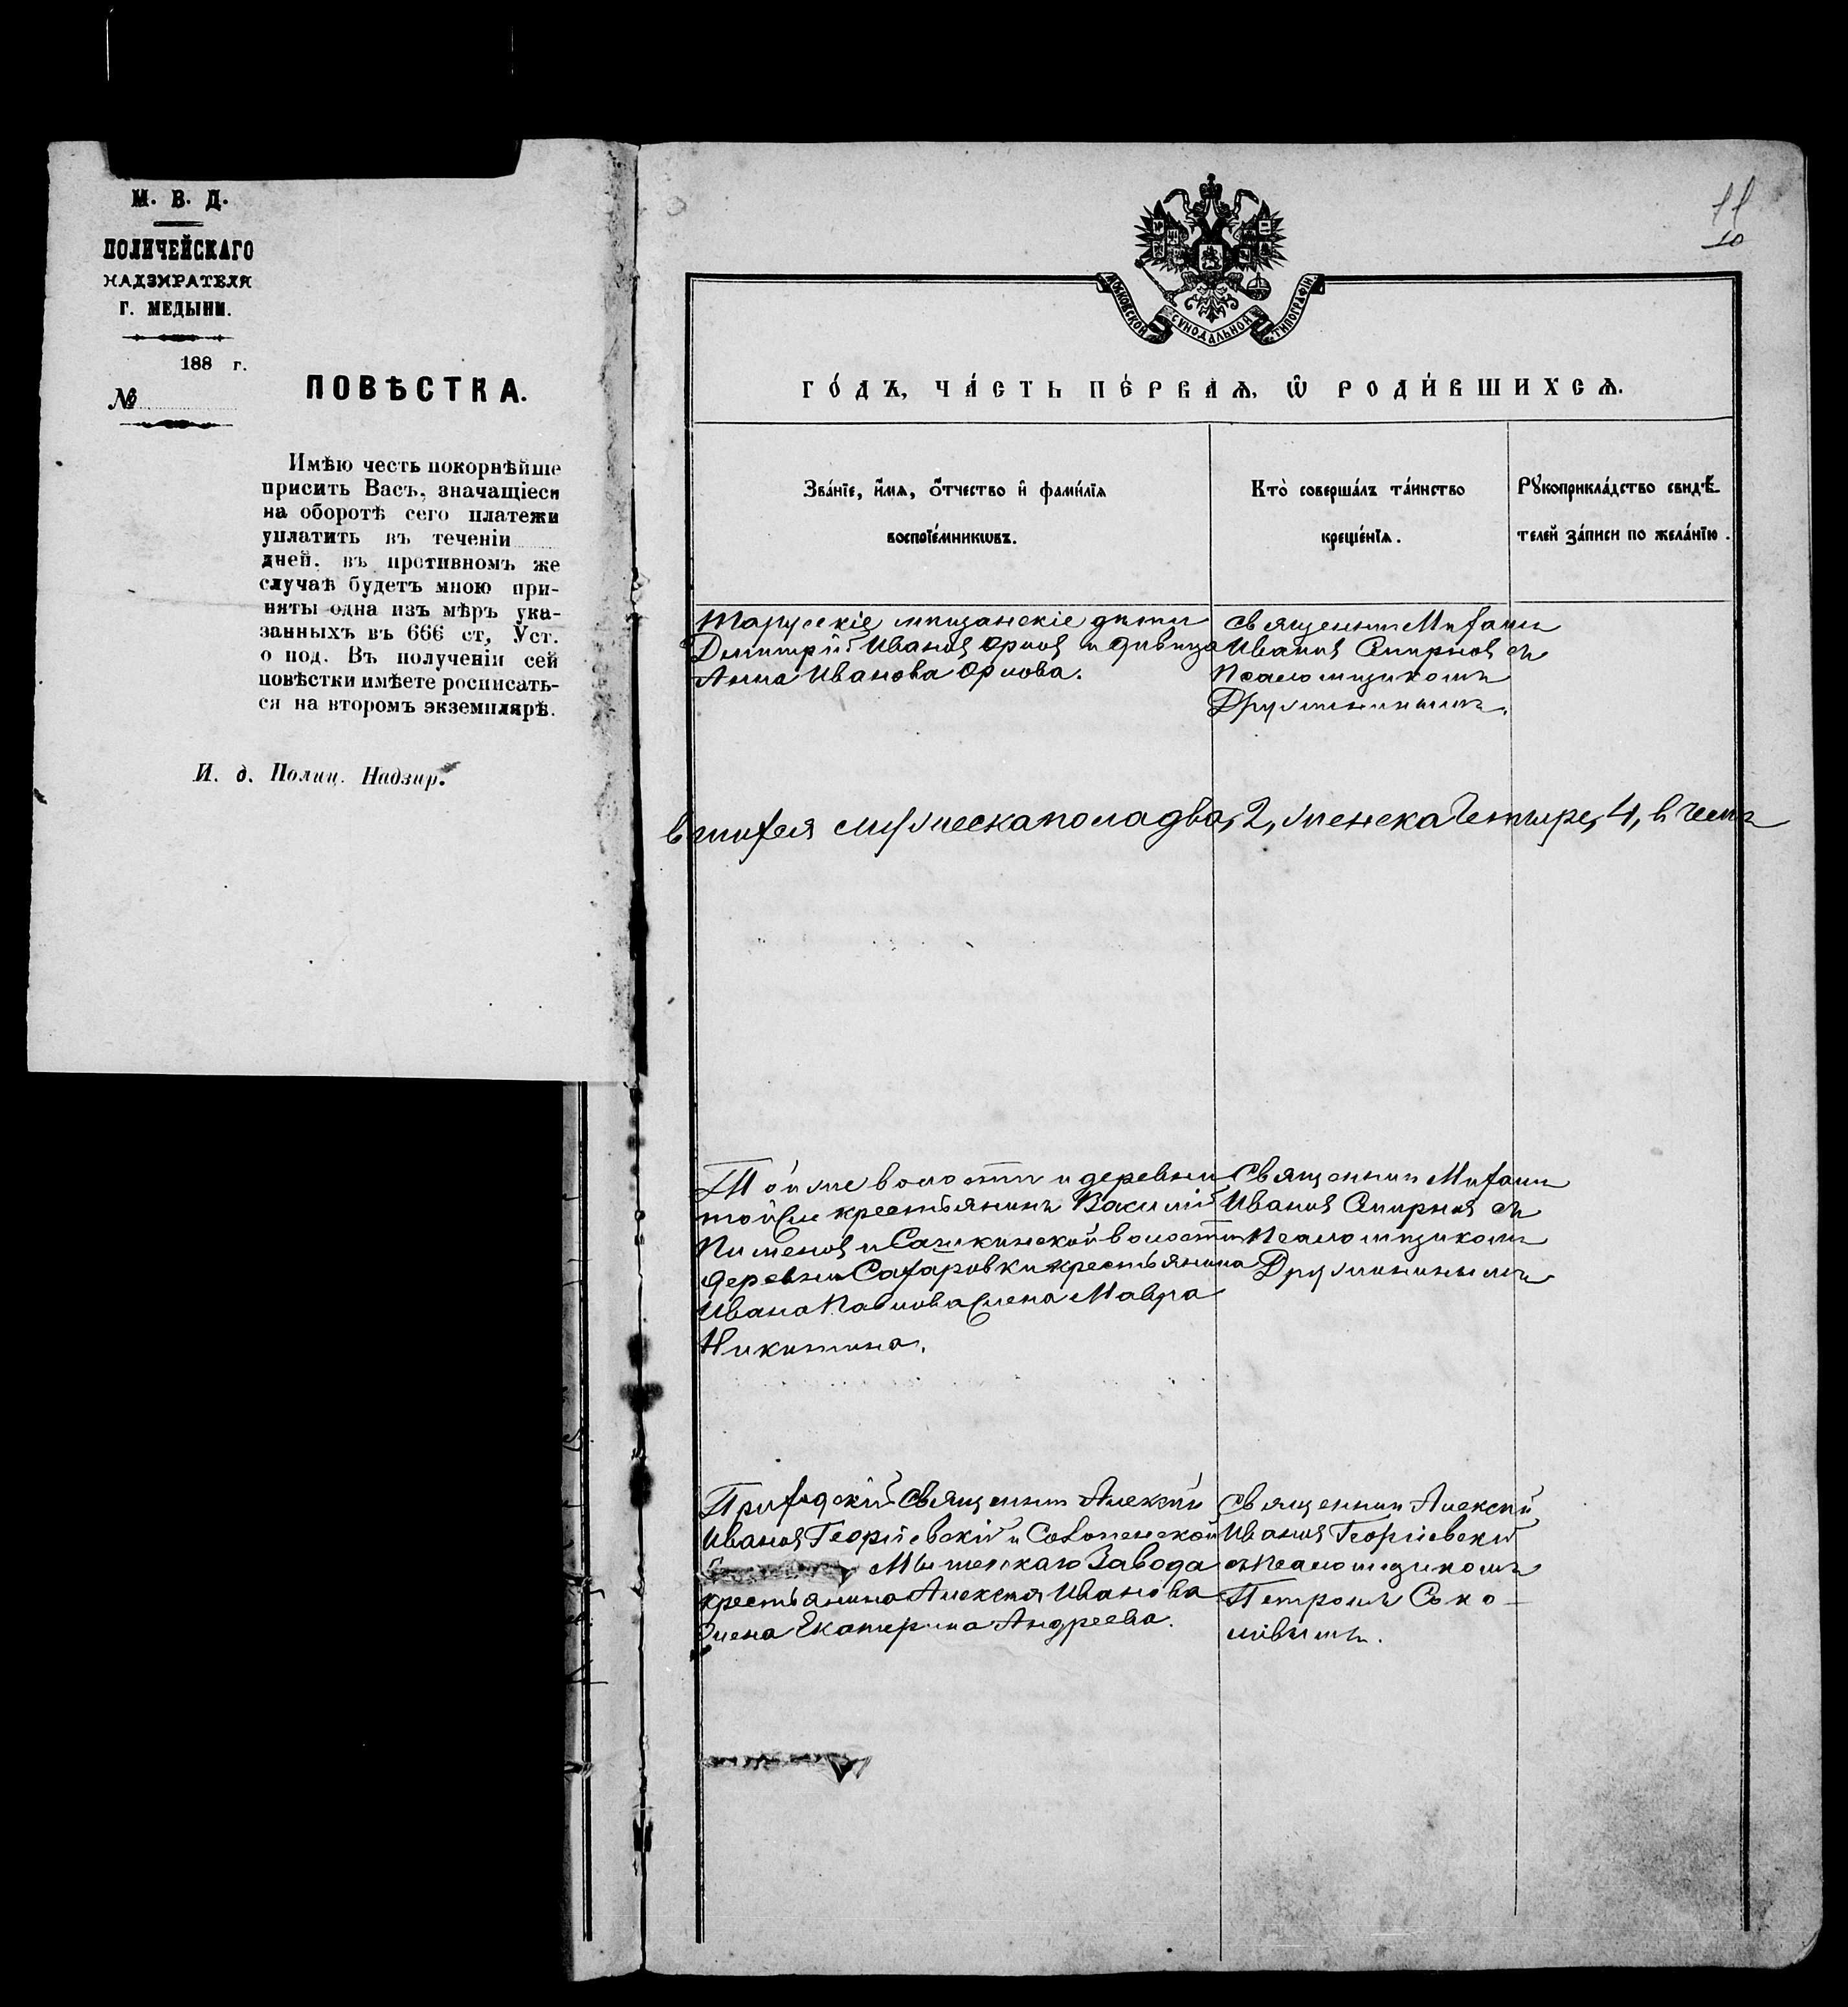 М. В. Д.
ПОЛИЧЕЙСКАГО
НАДЗИРАТЕЛЯ
Г. МЕДЫНИ.
188 г.
№
ПОВѢСТКА.
Имѣю честь покорнѣйше
присить Васъ, значащіеся
на оборотѣ сего платежи
уплатить въ теченіи
дней. въ противномъ же
случаѣ будетъ мною при-
няты одна изъ мѣръ ука-
занныхъ въ 666 ст, Уст.
о под. Въ полученіи сей
повѣстки имѣете росписать-
ся на второмъ экземплярѣ.
И. д. Полиц. Надзир.
11
10
МОСКОВСКОЙ СѴНОДАЛЬНОЙ ТИПОГРАФІИ
ГО́ДЪ, ЧА́СТЬ ПЕ́РВАѦ, Ѡ҆ РОДИ́ВШИХСѦ.
Зва́нїе, и҆́мѧ, ѻ҆́тчество и҆ фами́лїѧ
воспрїе́мникѡвъ.
Кто̀ соверша́лъ та́инство
креще́нїѧ.
Рꙋкоприкла́дство свидѣ́-
телей за́писи по жела́нїю.
Тарусскіе мѣщанскіе дѣти
Димитрій Ивановъ Орловъ и дѣвица
Анна Иванова Орлова.
Священникъ Михаилъ
Ивановъ Смирновъ съ
Псаломщикомъ
Дружининымъ.
вшихся мужеска пола два, 2, женска Четыре, 4, в чемъ
Той же волости и деревни
той же крестьянинъ Василій
Пименовъ и Сашкинской волости
деревни Сахаровки крестьянина
Ивана Павлова жена Мавра
Никитина.
Священникъ Михаилъ
Ивановъ Смирновъ съ
Псаломщикомъ
Дружининымъ
Приходскій Священникъ Алексѣй
Ивановъ Георгіевскій и Соболенской
Мышегскаго Завода
крестьянина Алексѣя Иванова
жена Екатерина Андреева.
Священникъ Алексѣй
Ивановъ Георгіевскій
съ Псаломщикомъ
Петромъ Соко-
ловымъ.